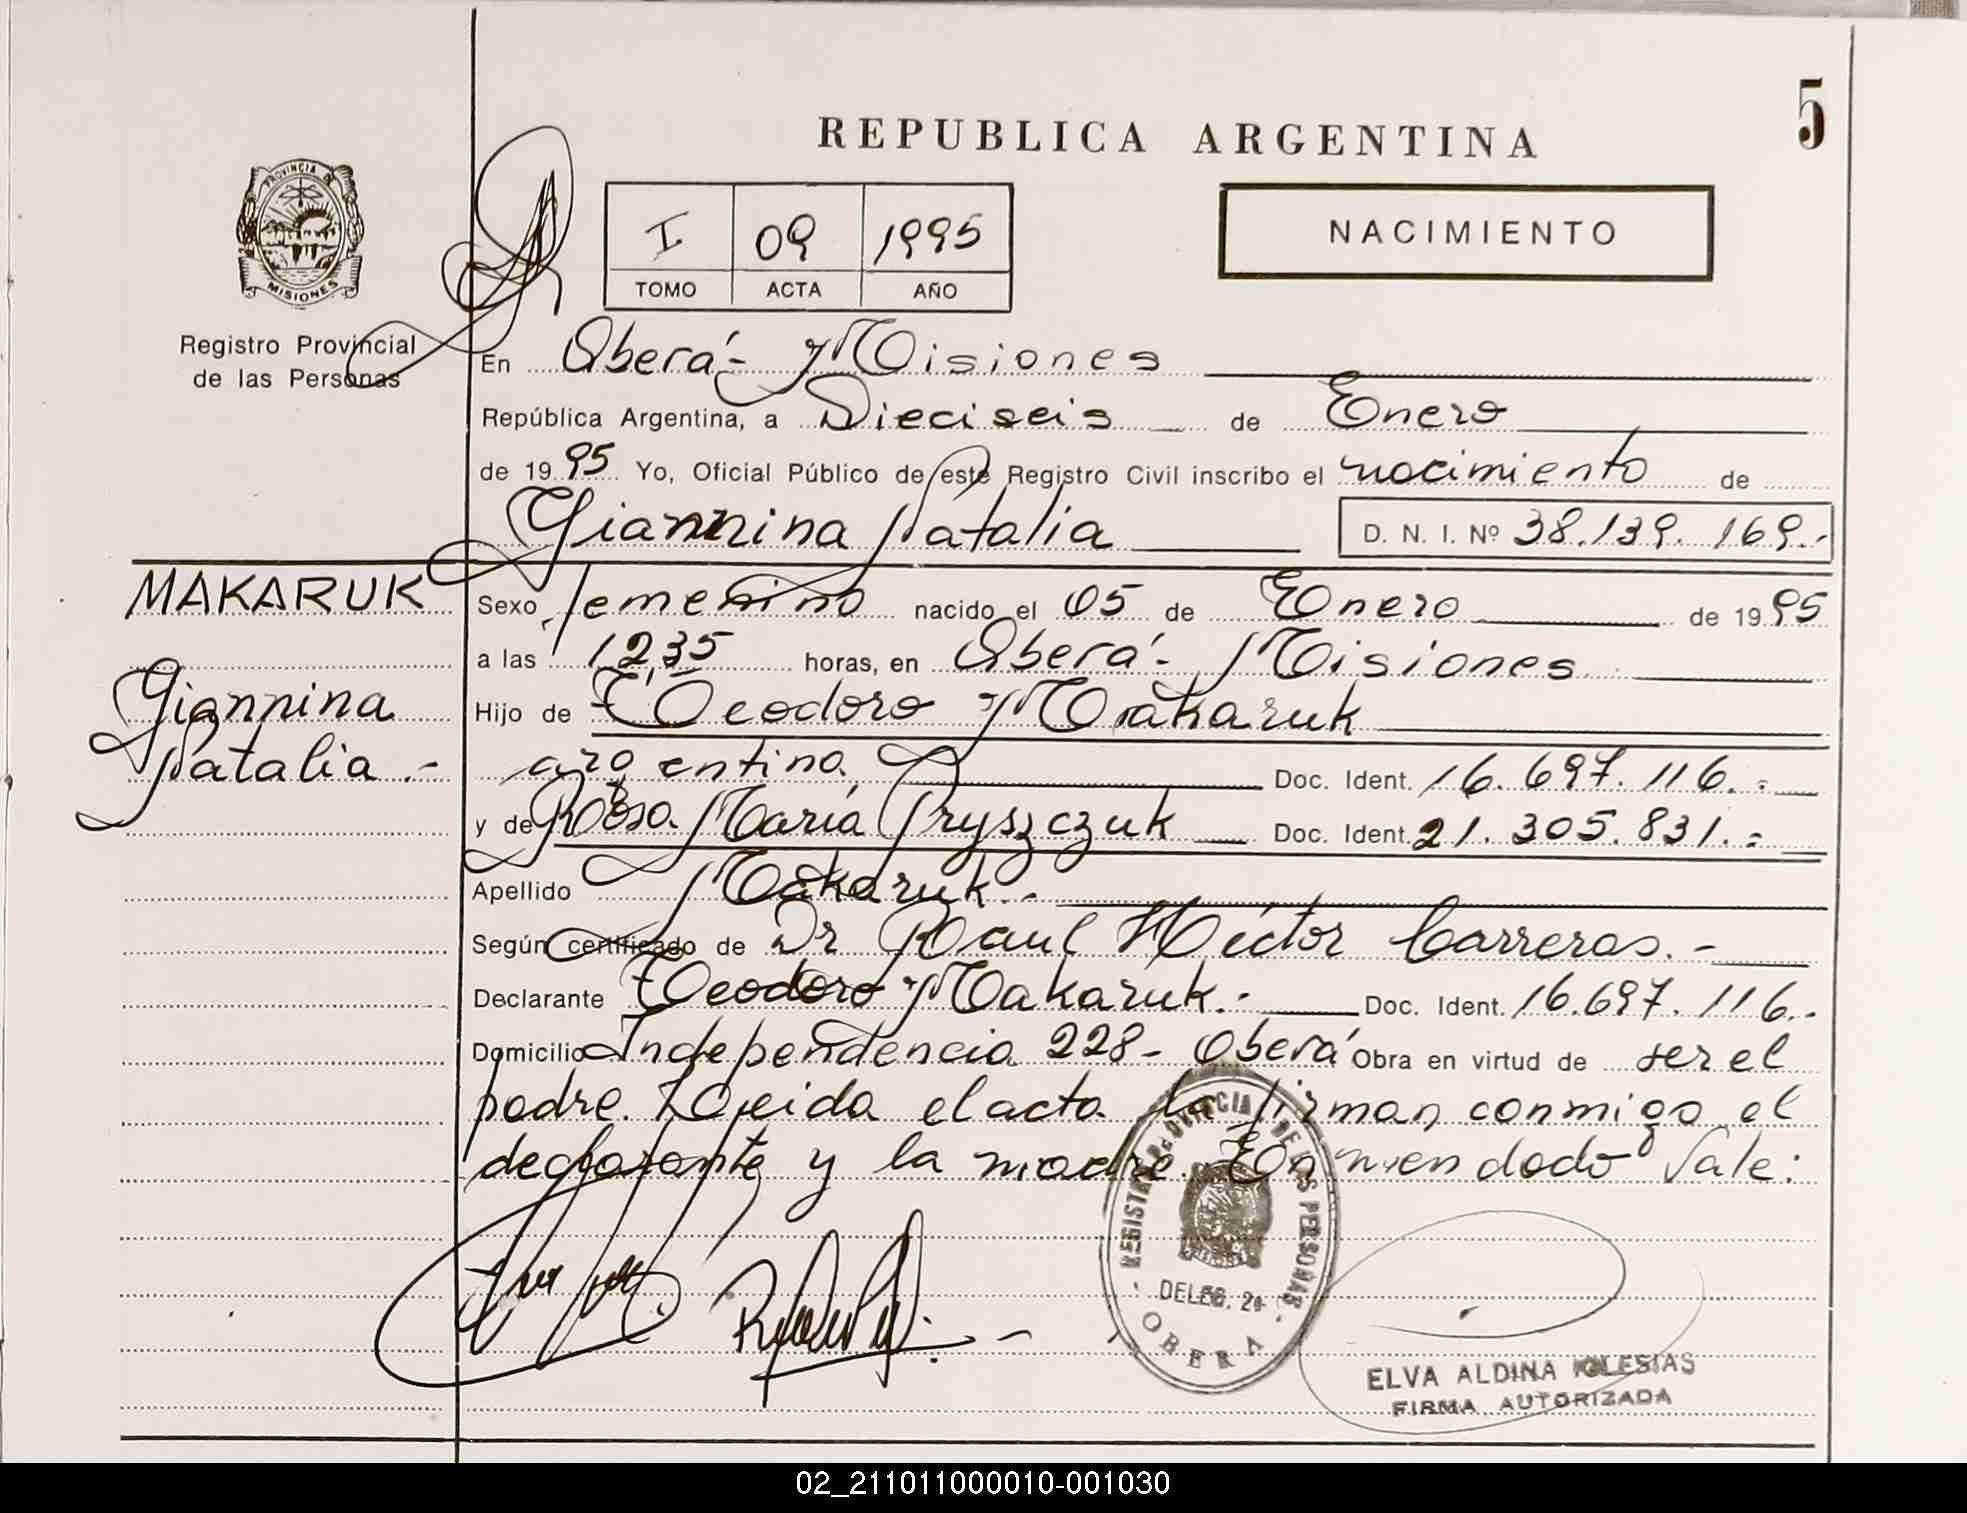 5
REPUBLICA ARGENTINA
PROVINCIA DE
MISIONES
Registro Provincial
de las Personas
I 09 1995
TOMO ACTA AÑO
NACIMIENTO
En Oberá - Misiones
República Argentina, a Dieciseis de Enero
de 1995 Yo, Oficial Público de este Registro Civil inscribo el nacimiento de
Giannina Natalia D. N. I. Nº 38.139.169.-
MAKARUK
Giannina
Natalia.-
Sexo femenino nacido el 05 de Enero de 1995
a las 12,35 horas, en Oberá - Misiones
Hijo de Teodoro Makaruk
argentino Doc. Ident. 16.697.116.-
y de Rosa María Pryszczuk Doc. Ident. 21.305.831.-
Apellido Makaruk.-
Según certificado de Dr Raul Héctor Carreras.-
Declarante Teodoro Makaruk.- Doc. Ident. 16.697.116.-
Domicilio Independencia 228- Oberá Obra en virtud de ser el
padre. Leida el acta la firman conmigo el
declarante y la madre. Enmendado Vale:
REGISTRO PROVINCIAL DE LAS PERSONAS
DELEG.
OBERA
ELVA ALDINA IGLESIAS
FIRMA AUTORIZADA
02_211011000010-001030